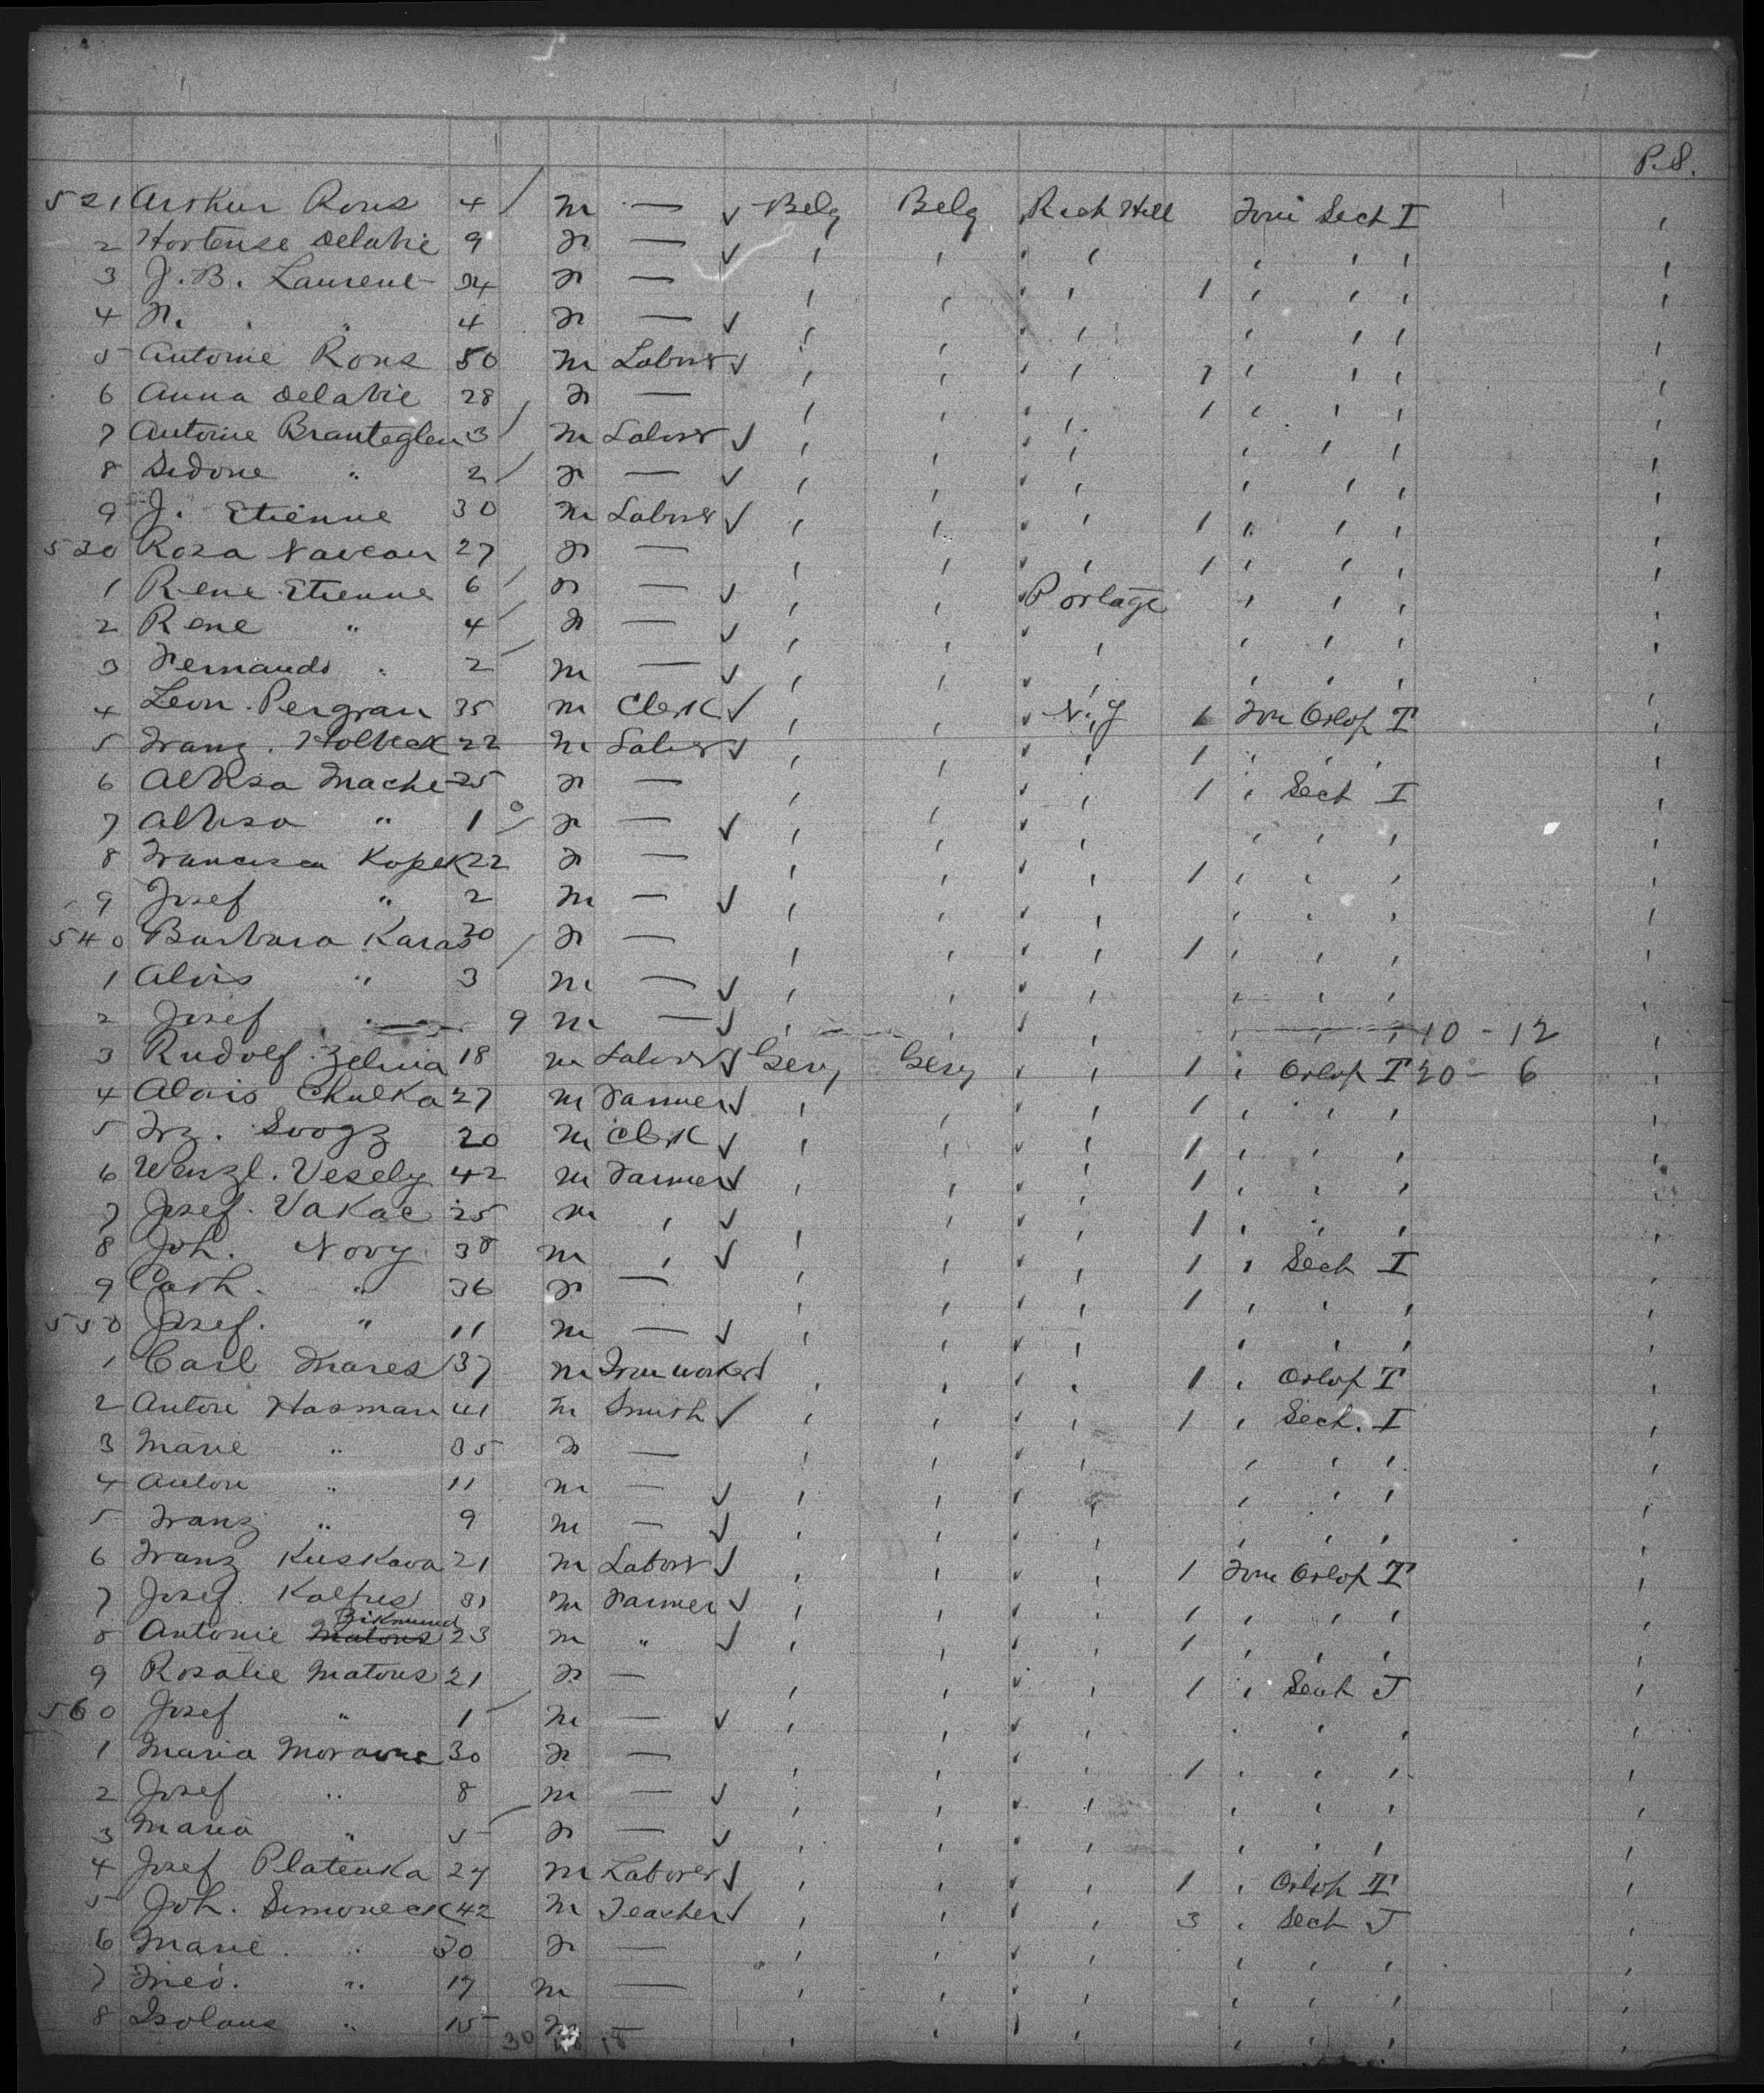 P.S.
521 Arthur Rons 4 / m — ✓ Belg Belg Rich Hill Fore Sect I
2 Hortense Delatie 9 f — ✓ " " " " " " "
3 J. B. Laurent 34 f — " " " " 1 " " "
4 " " 4 f — ✓ " " " " " " "
5 Antoine Rons 50 m Laborer ✓ " " " " 1 " " "
6 Anna Delatie 28 f — " " " " 1 " " "
7 Antoine 3 / m Laborer ✓ " " " " " " "
8 Sidone " 2 / f — ✓ " " " " " " "
9 J. Etienne 30 m Laborer ✓ " " " " 1 " " "
530 Roza 27 f — " " " " 1 " " "
1 Rene Etienne 6 / f — ✓ " " Portage " " "
2 Rene " 4 / f — ✓ " " " " " "
3 Fernando " 2 / m — ✓ " " " " " "
4 Leon Pergran 35 m Clerk ✓ " " N.Y 1 Fore Orlop T
5 Franz. Holbeck 22 m Laborer ✓ " " " 1 " " "
6 Mache 25 f — " " " 1 " Sect I
7 " 1 / f — ✓ " " " " " "
8 Francisca Kopek 22 f — " " " 1 " " "
9 Josef " 2 m — ✓ " " " " " "
540 Barbara Karas 30 f — " " " 1 " " "
1 Alois " 3 / m — ✓ " " " " " "
2 Josef " 9 m — ✓ " " " " " " 10 - 12
3 Rudolf Zelina 18 m Laborer ✓ Gery Gery " 1 " Orlop T 20 - 6
4 Alois Chulka 27 m Farmer ✓ " " " 1 " " "
5 Frz. 20 m Clerk ✓ " " " 1 " " "
6 Wenzl. Vesely 42 m Farmer ✓ " " " 1 " " "
7 Josef. Vakac 25 m " ✓ " " " 1 " " "
8 Joh. Novy 38 m " ✓ " " " 1 " Sect I
9 Cath. " 36 f — " " " 1 " " "
550 Josef. " 11 m — ✓ " " " " " "
1 Carl Mares 37 m Iron worker ✓ " " " 1 " Orlop T
2 Anton Hasman 41 m Smith ✓ " " " 1 " Sect. I
3 Marie " 35 f — " " " " " "
4 Anton " 11 m — ✓ " " " " " "
5 Franz " 9 m — ✓ " " " " " "
6 Franz Kuskava 21 m Laborer ✓ " " " 1 Fore Orlop T
7 Josef. 31 m Farmer ✓ " " " 1 " " "
Zikmund
8 Antonie Matous 23 m " ✓ " " " 1 " " "
9 Rosalie Matous 21 f — " " " 1 " Sect J
560 Josef " 1 / m — ✓ " " " " " "
1 Maria 30 f — " " " 1 " " "
2 Josef " 8 m — ✓ " " " " " "
3 Maria " 5 / f — ✓ " " " " " "
4 Josef Platenka 24 m Laborer ✓ " " " 1 " Orlop T
5 Joh. Simoneck 42 m Teacher ✓ " " " 3 " Sect J
6 Marie. " 30 f — " " " " " "
7 " 17 m — " " " " " "
8 " 15 — " " " " " "
30 18